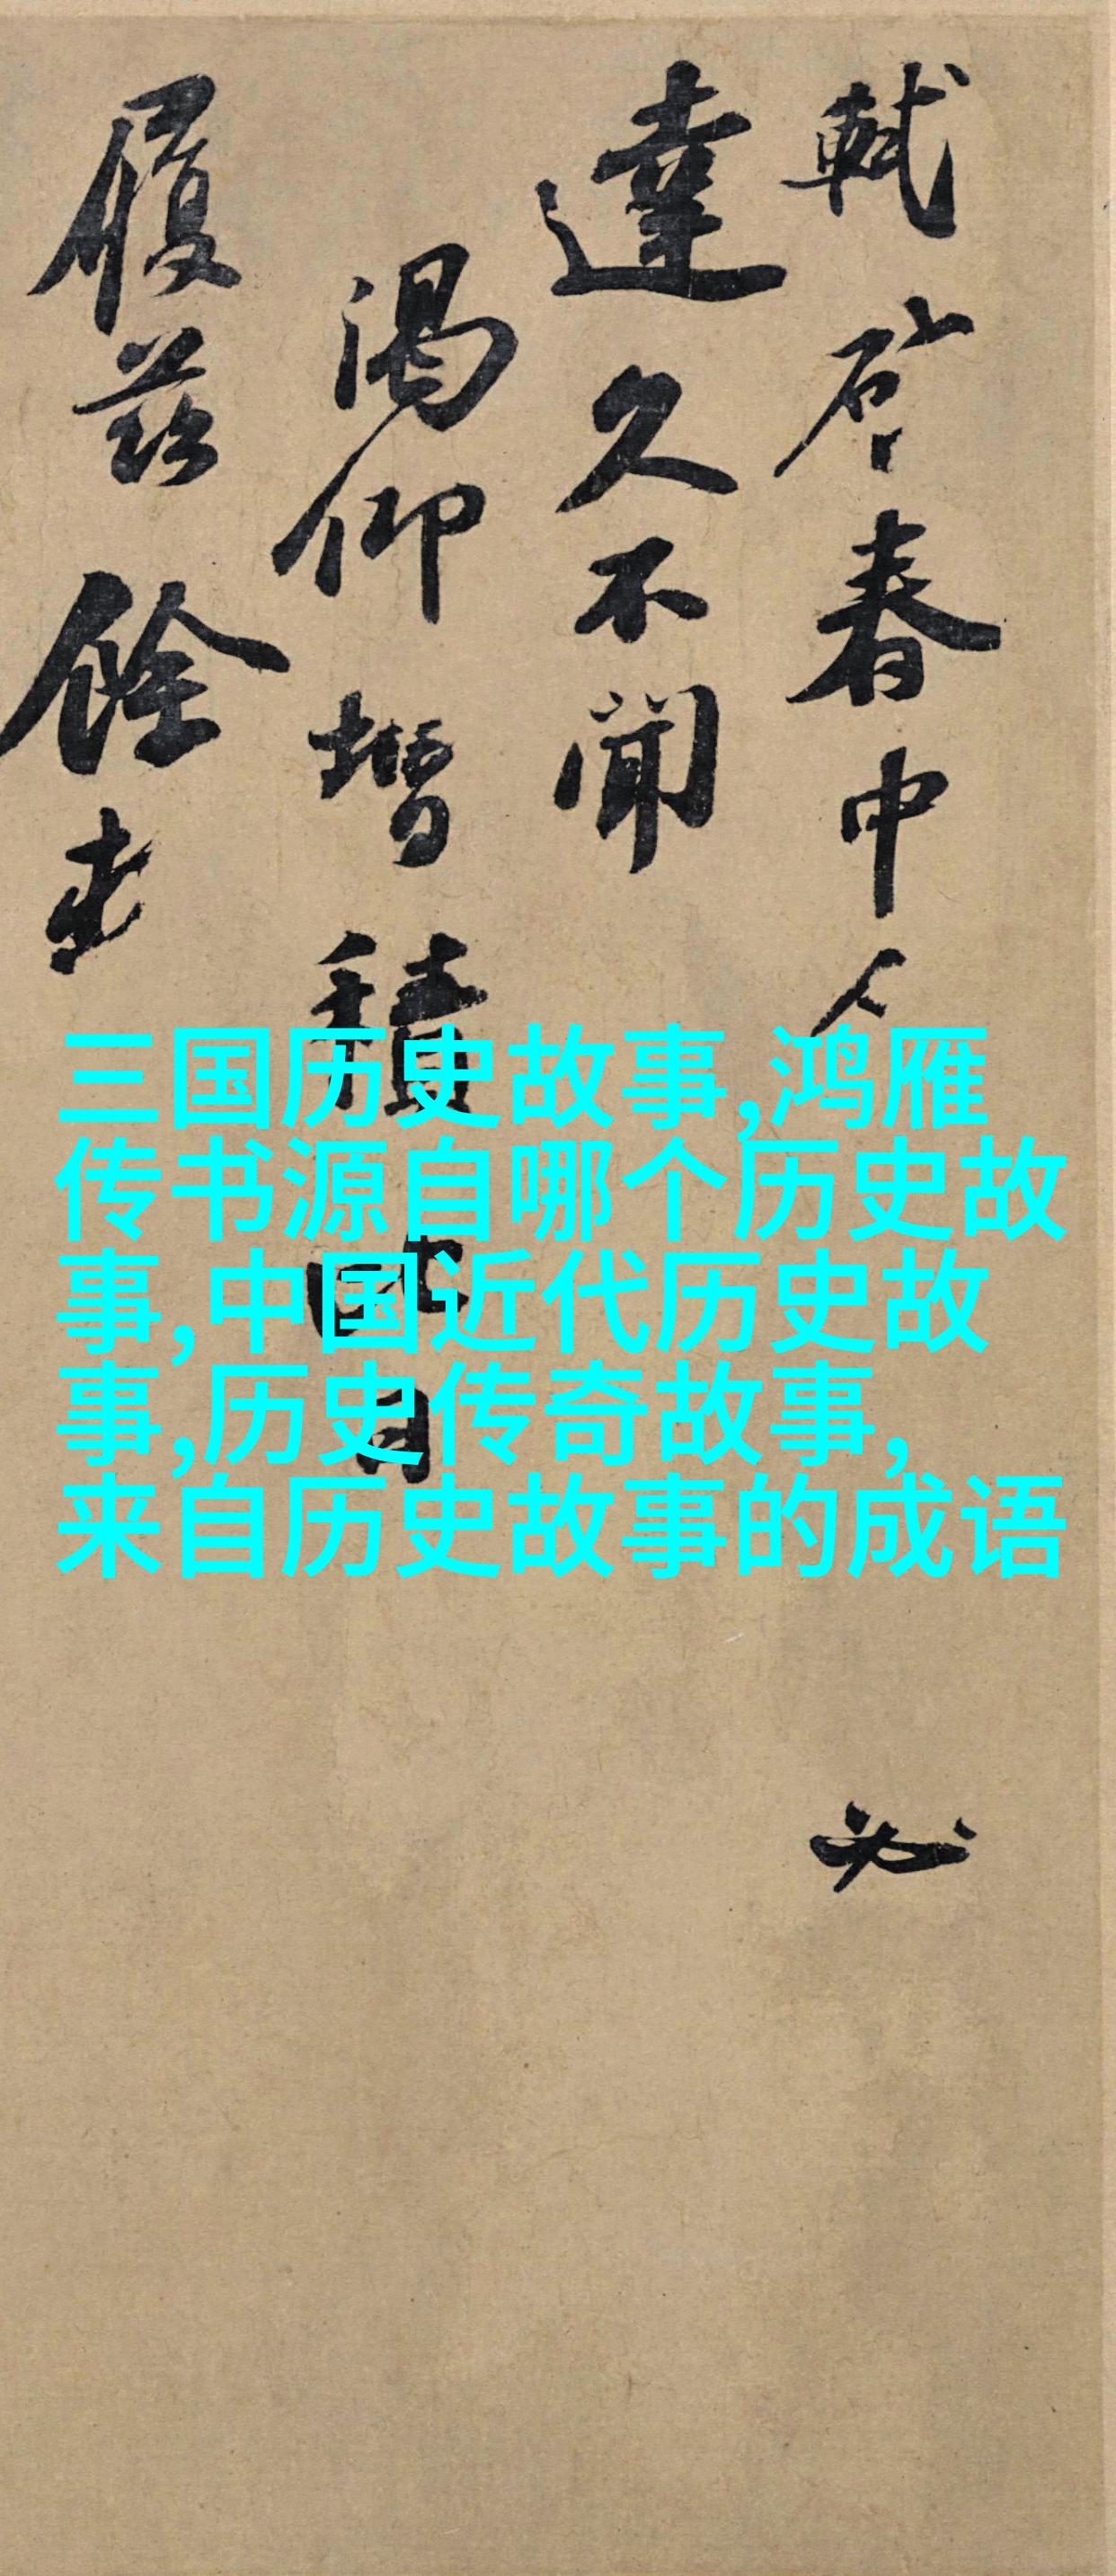 軾啓春中人
必
達久不聞
渴仰增積比日
履茲餘寒
三国历史故事,鸿雁
传书源自哪个历史故
事,中国近代历史故
事,历史传奇故事,
来自历史故事的成语